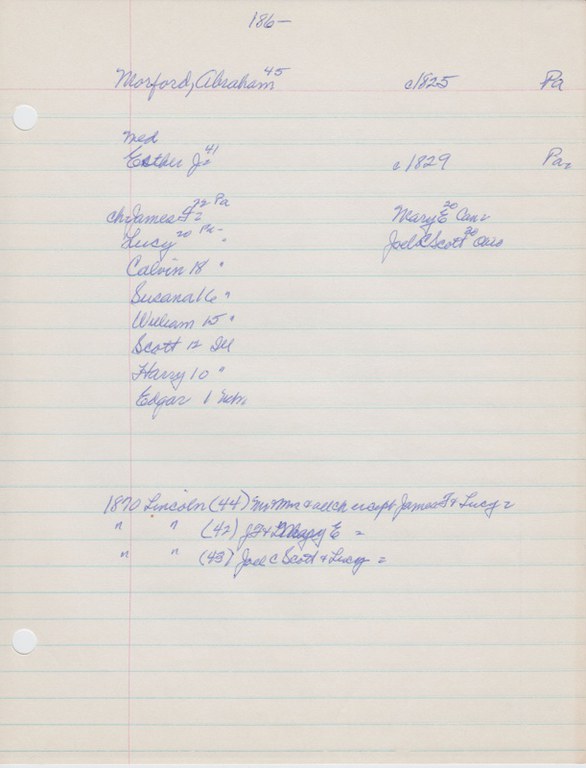 186-
Morford, Abraham 45 c1825 Pa
med
Esther J. 41 c1829 Pa
ch James F 22 Pa Mary E 20 Can
Lucy 20 Pa - " Joel C Scott 26 Ohio
Calvin 18 "
Susana 16 "
William 15 "
Scott 12 Ill
Harry 10 "
Edgar 1 Neb.
1870 Lincoln (44) Mr & Mrs & all ch except James F & Lucy =
" " (42) J F & Mary E =
" " (43) Joel C Scott & Lucy =